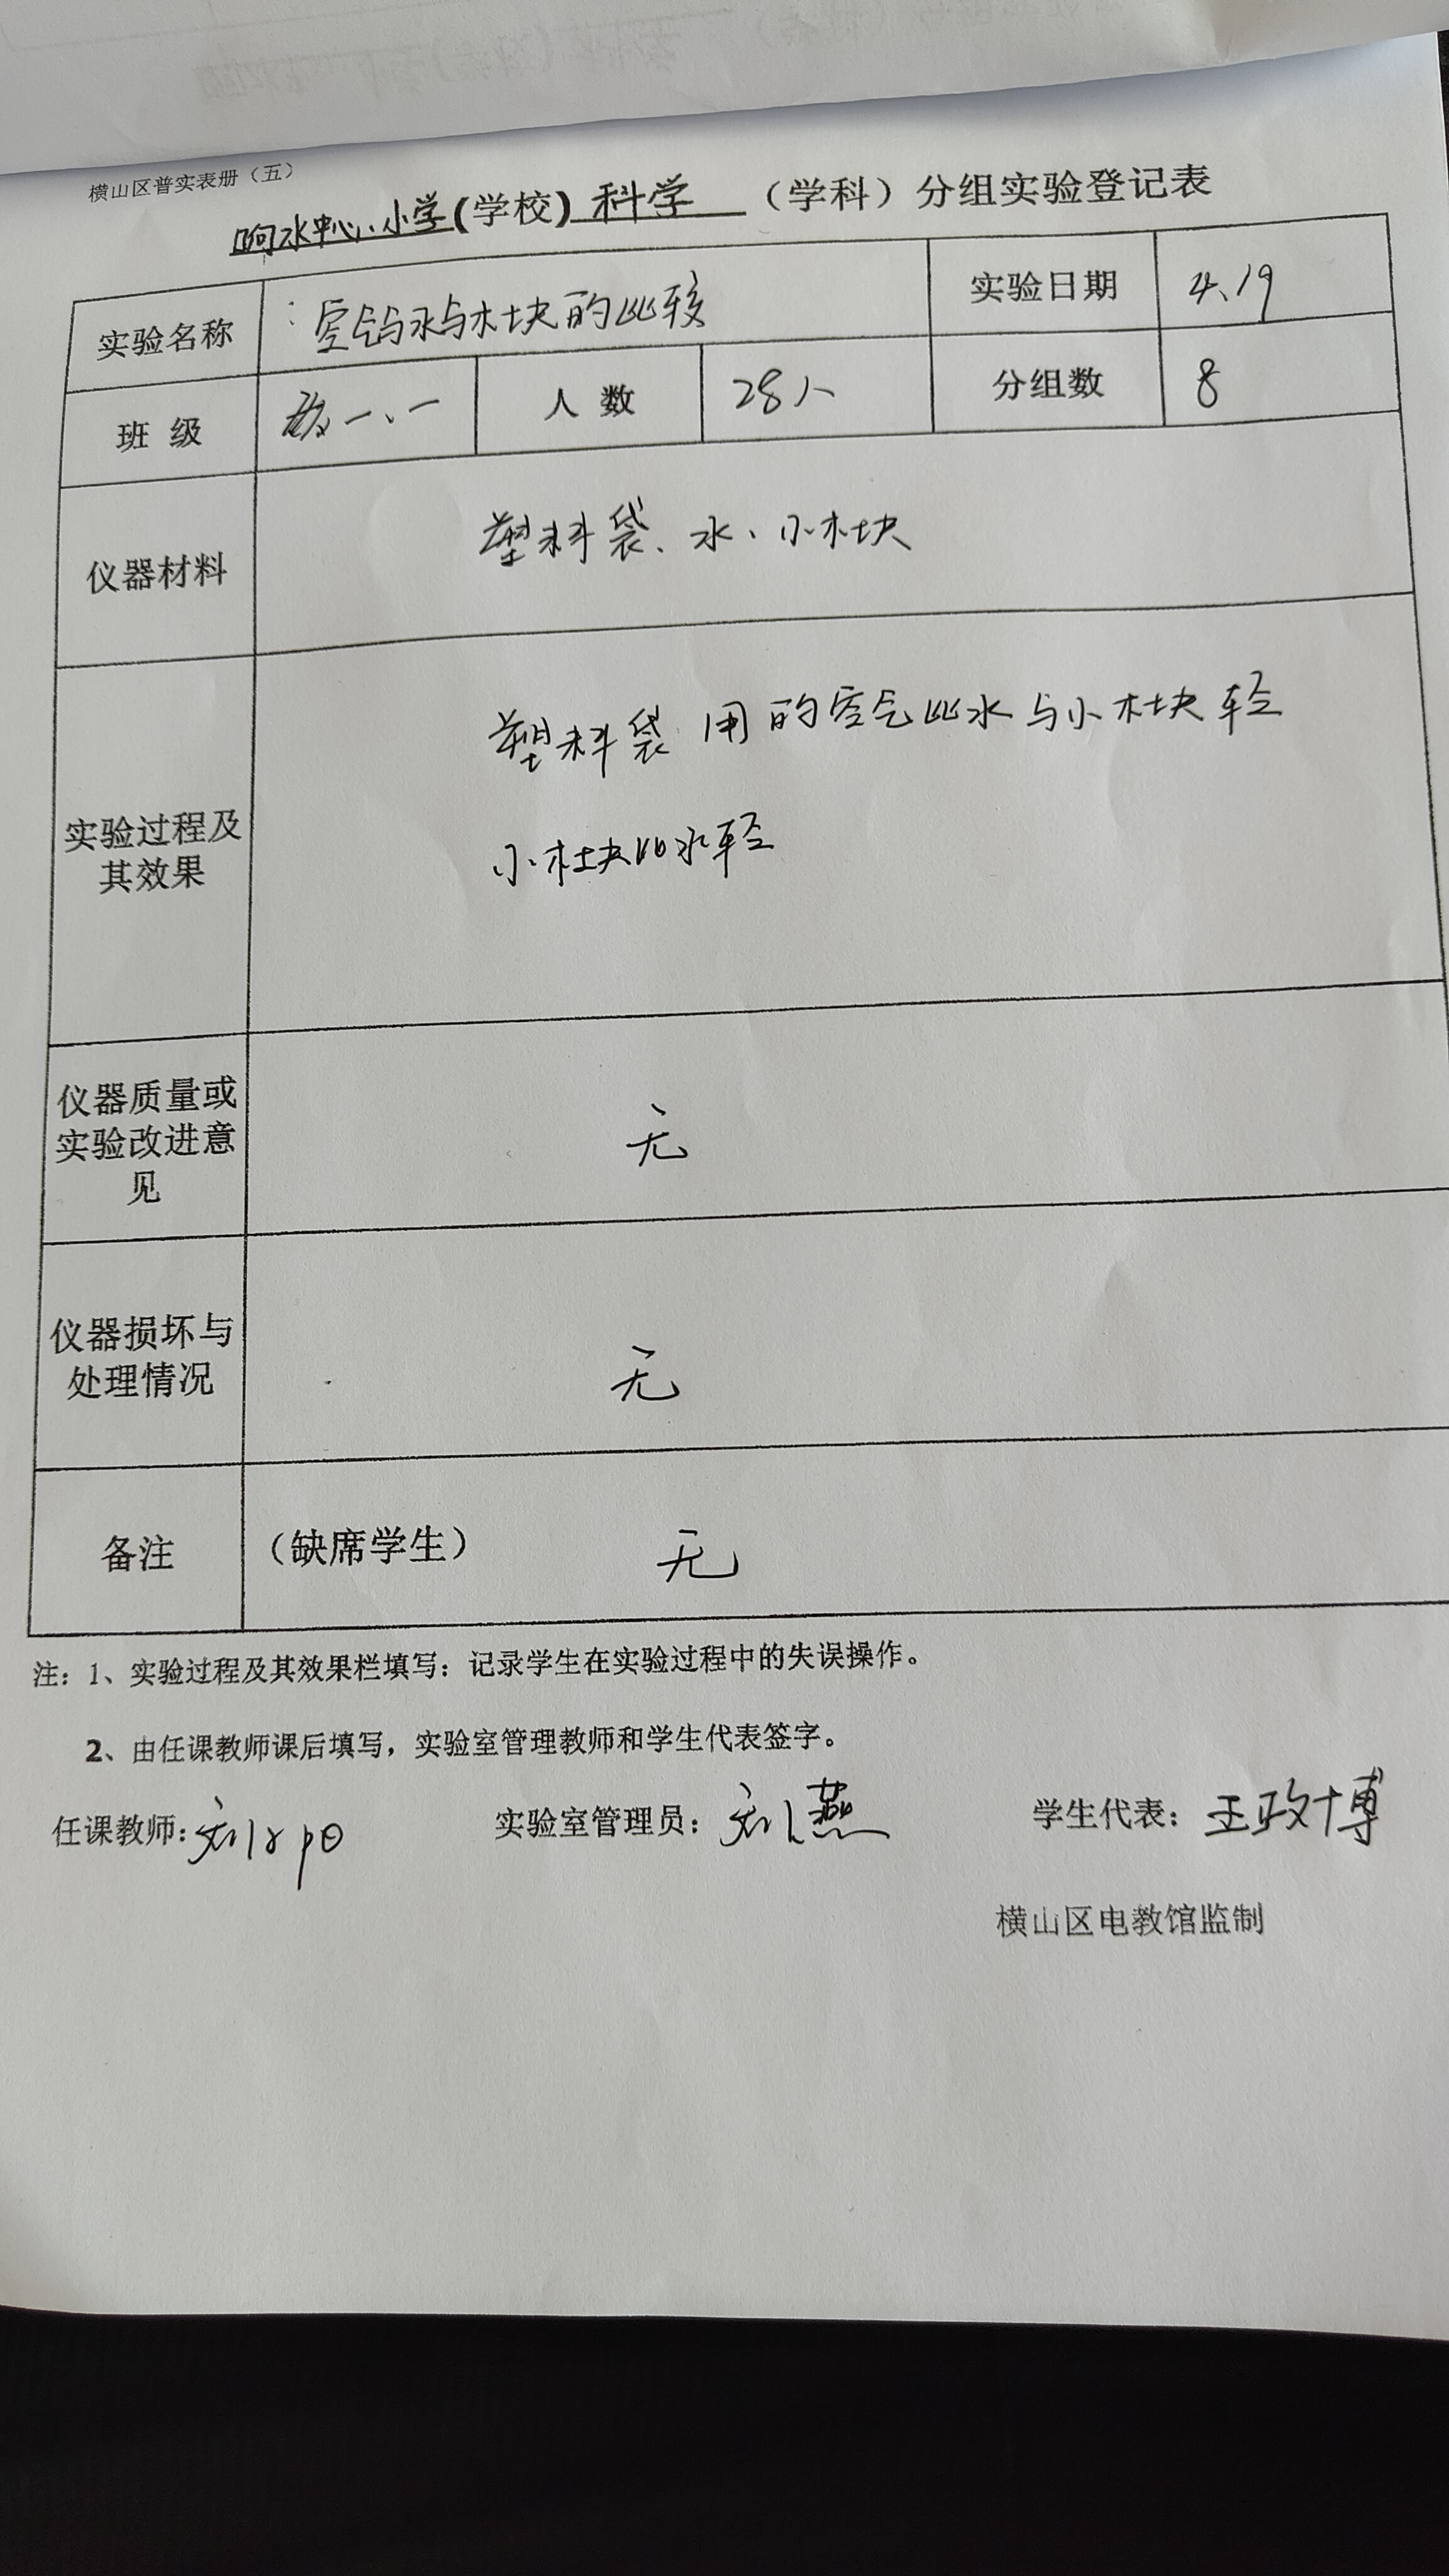 横山区普实表册（五）
响水中心小学(学校)科学（学科）分组实验登记表
实验名称 空气与水与木块的比较 实验日期 4、19
班 级 一、一 人 数 28人 分组数 8
仪器材料 塑料袋、水、小木块
实验过程及
其效果
塑料袋用的空气比水与小木块轻
小木块比水轻
仪器质量或
实验改进意
见
无
仪器损坏与
处理情况
无
备注 （缺席学生） 无
注：1、实验过程及其效果栏填写：记录学生在实验过程中的失误操作。
2、由任课教师课后填写，实验室管理教师和学生代表签字。
任课教师: 刘 实验室管理员：刘燕 学生代表：王政博
横山区电教馆监制